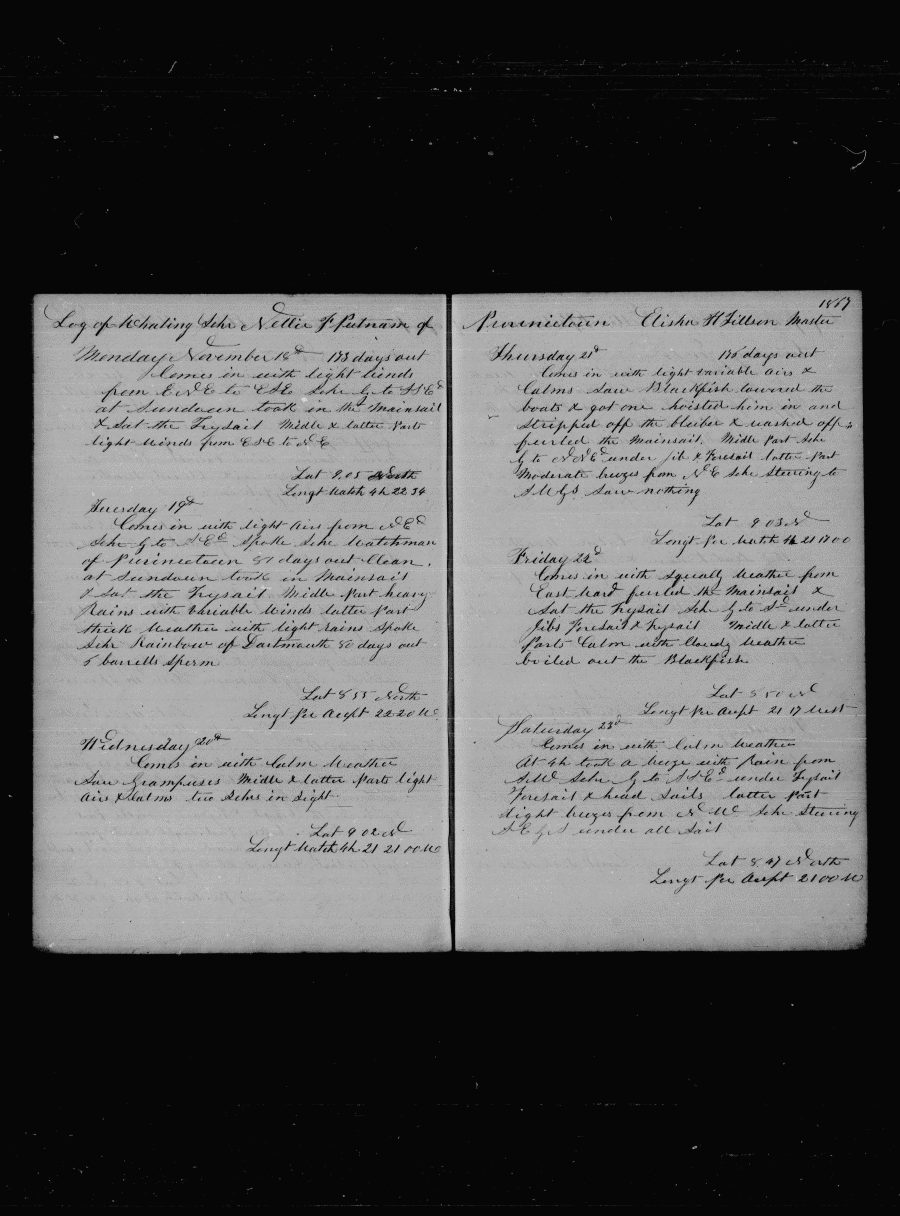 Log of Whaling Schr Nettie F Putnam of
Monday November 18th 173 days out
Comes in with light winds
from E N E to E S E Schr G to S S Ed
at Sundown took in the Mainsail
& Sat the Trysail Midle & latter Parts
light winds from E S E to N E
Lat 9,05 North
Longt Watch 4h 22 34
Tuesday 19th
Comes in with light Airs from N Ed
Schr G to S Ed Spoke Schr Watchman
of Provincetown days out Clean.
at Sundown took in Mainsail
& Sat the Trysail Midle Part heavy
Rains with variable Winds latter Part
thick Weather with light rains Spoke
Schr Rainbow of Dartmouth 50 days out
5 barrells Sperm
Lat 8 55 North
Longt Per Acept 22 20 W.
Wednesday 20th
Comes in with Calm Weather
Saw Grampuses Midle & latter Parts light
Airs & Calms two Schrs in Sight
Lat 9 02 N
Longt Watch 4h 21 21 00 W
1867
Provincetown Elisha H Tillson Master
Thursday 21st 176 days out
Comes in with light variable airs &
Calms Saw Blackfish lowered the
boats & got one hoisted him in and
Stripped off the blubber & washed off &
furled the Mainsail, Midle Part Schr
G to N N Ed under jib & Foresail latter Part
Moderate brezes from N E Schr Steering to
S W G S Saw nothing
Lat 9 03 N
Longt Per Watch 4h 21 17 00
Friday 22d
Comes in with Squally Weather from
East ward furled the Mainsail &
Sat the Trysail Sch G to Sd under
Jibs Foresail & trysail Midle & latter
Parts Calm with Cloudy Weather
boiled out the Blackfish
Lat 8 50 N
Longt Per Acept 21 17 West
Saturday 23d
Comes in with Calm Weather
At 4h took a breze with Rain from
S W Schr G to S S Ed under Trysail
Foresail & head Sails latter Part
light brezes from N W Schr Steering
S E G S under all Sail
Lat 8 47 North
Longt Per Acept 21 00 W